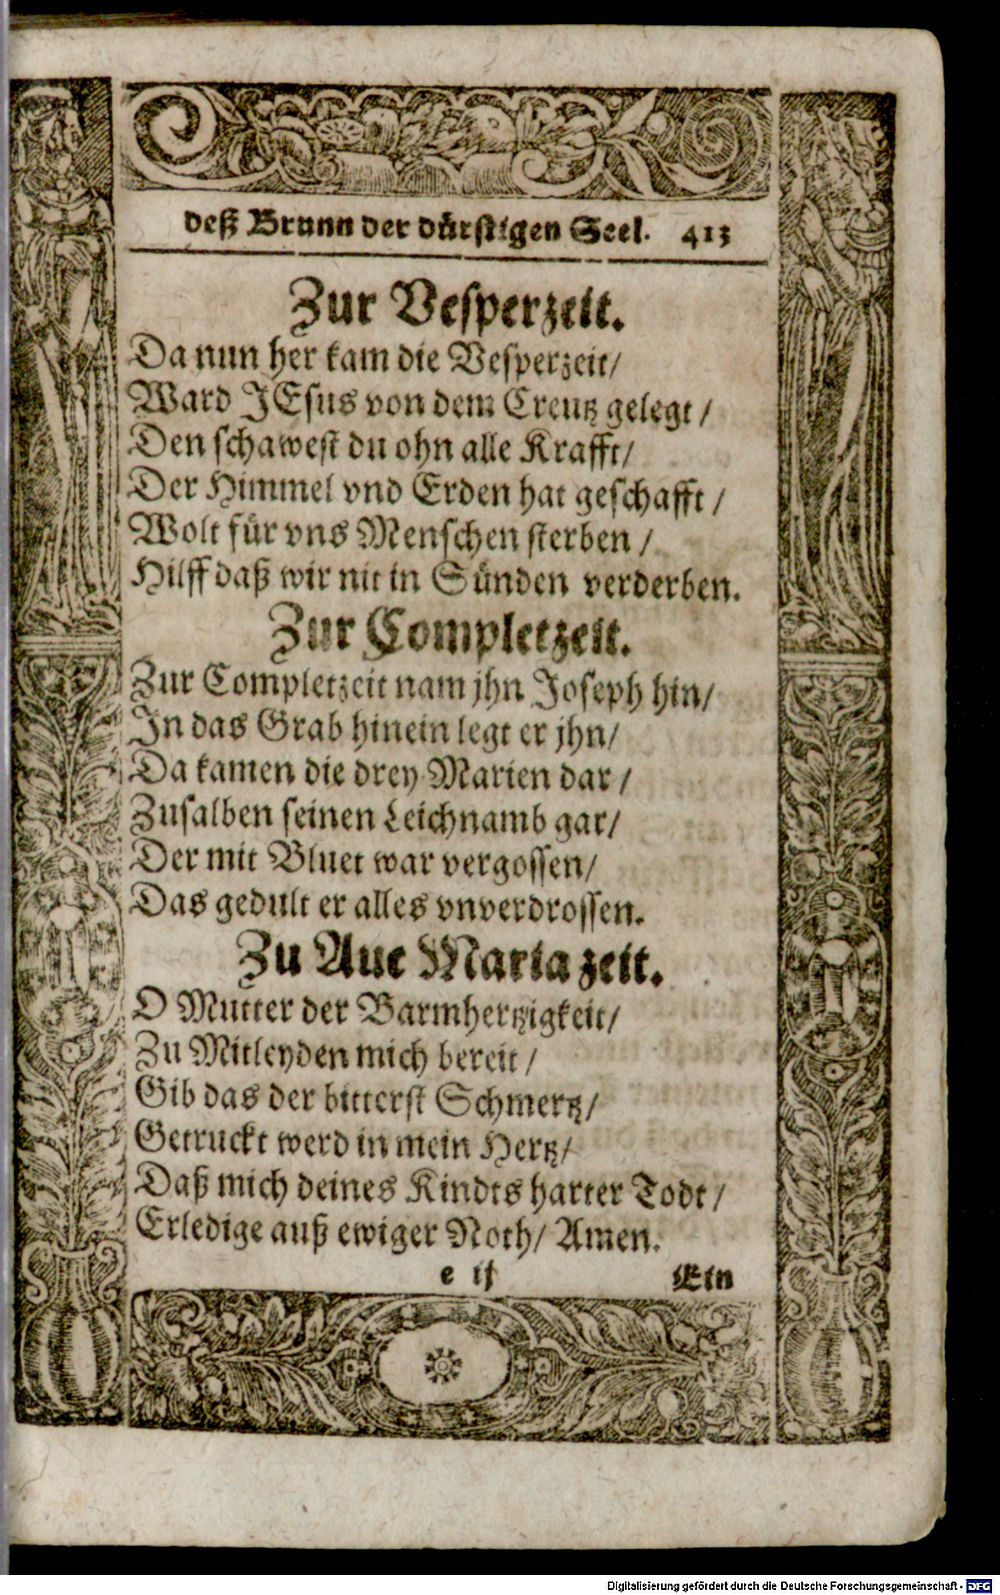 deß Brunn der dürstigen Seel. 413
Zur Vesperzeit.
Da nun her kam die Vesperzeit/
Ward JEsus von dem Creutz gelegt /
Den schawest du ohn alle Krafft/
Der Himmel vnd Erden hat geschafft /
Wolt für vns Menschen sterben /
Hilff daß wir nit in Sünden verderben.
Zur Completzeit.
Zur Completzeit nam jhn Joseph hin/
In das Grab hinein legt er jhn/
Da kamen die drey Marien dar /
Zusalben seinen Leichnamb gar/
Der mit Bluet war vergossen/
Das gedult er alles vnverdrossen.
Zu Aue Maria zeit.
O Mutter der Barmhertzigkeit/
Zu Mitleyden mich bereit /
Gib das der bitterst Schmertz/
Getruckt werd in mein Hertz/
Daß mich deines Kindts harter Todt /
Erledige auß ewiger Noth/ Amen.
e ij Ein
Digitalisierung gefördert durch die Deutsche Forschungsgemeinschaft - DFG